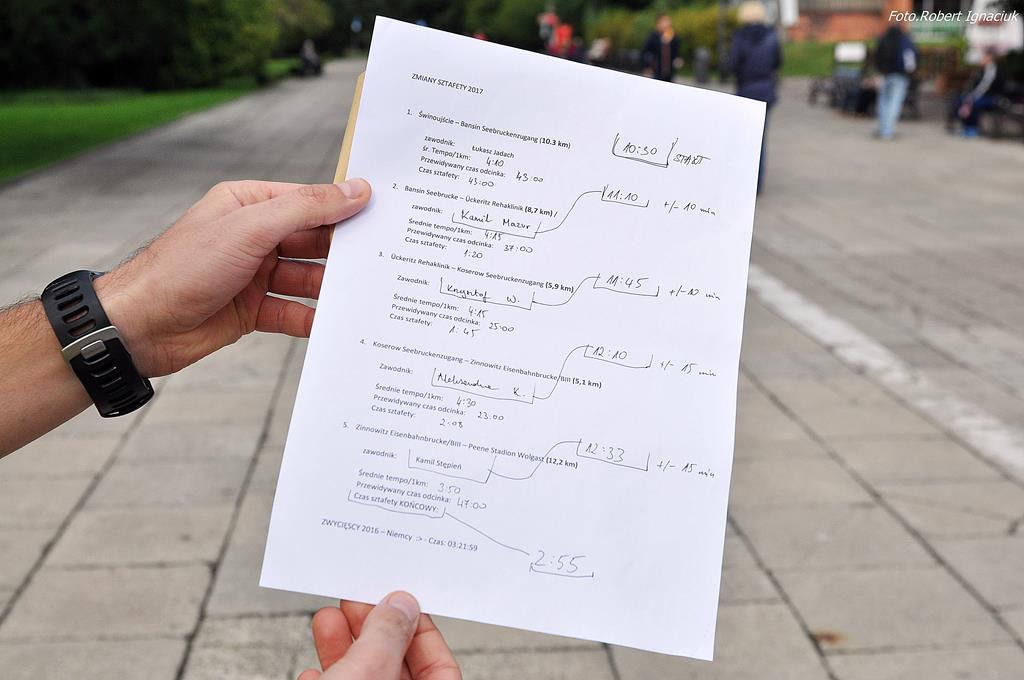 Foto.Robert Ignaciuk
ZMIANY SZTAFETY 2017
1. Świnoujście – Bansin Seebruckenzugang (10.3 km)
zawodnik: Łukasz Jadach
śr. Tempo/1km: 4:10
Przewidywany czas odcinka: 43:00
Czas sztafety: 43:00
10:30 START
2. Bansin Seebrucke – Ückeritz Rehaklinik (8,7 km) /
zawodnik: Kamil Mazur
Średnie tempo/1km: 4:15
Przewidywany czas odcinka: 37:00
Czas sztafety: 1:20
11:10 +/- 10 min
3. Ückeritz Rehaklinik – Koserow Seebruckenzugang (5,9 km)
Zawodnik: Krzysztof W.
Średnie tempo/1km: 4:15
Przewidywany czas odcinka: 25:00
Czas sztafety: 1:45
11:45 +/- 10 min
4. Koserow Seebruckenzugang – Zinnowitz Eisenbahnbrucke/Bill (5,1 km)
Zawodnik: Aleksandra K.
Średnie tempo/1km: 4:30
Przewidywany czas odcinka: 23:00
Czas sztafety: 2:08
12:10 +/- 15 min
5. Zinnowitz Eisenbahnbrucke/Bill – Peene Stadion Wolgast (12,2 km)
zawodnik: Kamil Stępień
Średnie tempo/1km: 3:50
Przewidywany czas odcinka: 47:00
Czas sztafety KOŃCOWY:
12:33 +/- 15 min
2:55
ZWYCIĘSCY 2016 – Niemcy :> - Czas: 03:21:59